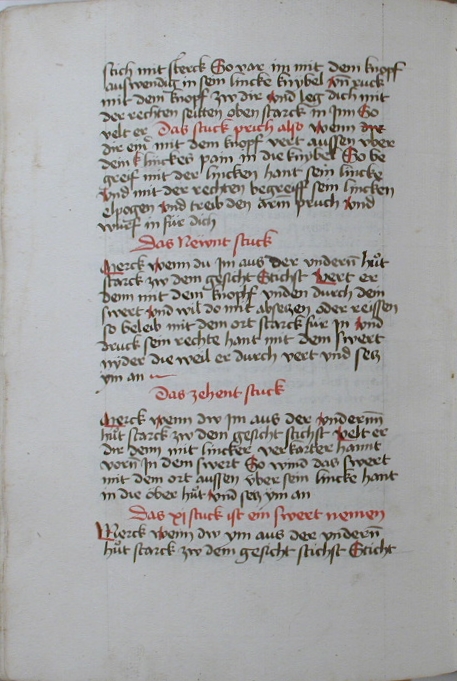 stich mit sterck So var im mit dem knopf
auswendig in sein lincke knÿbel vn̄ ruck
mit dem knopf zw dir vnd leg dich mit
der rechten seitten oben starck in jm So
velt er Das stuck prich also wenn
dir eins mit dem knopf vert aussen vber
dein linckes pain in die knÿbel So be
greif mit der lincken hant sein lincke
vnd mit der rechten begreiff sein lincken
elpogen vnd treib den arm pruch vnd
würf in für dich
Das Newnt stuck
Merck wenn du Im aus der vndern̄ hůt
starck zw dem gesicht Stichst Vert er
denn mit dem knopf vnden durch dem
swert vnd wil do mit absetzen oder reissen
so beleib mit dem ort starck für in vnd
druck sein rechte hant mit dem swert
nÿder die weil er durch vert vnd setz
ym an
Das zehent stuck
Merck wenn dw Im aus der vndern̄
hůt starck zw dem gesicht stichst velt er
dir denn mit lincker verkarter hannt
vorn̄ in dem swert So wind das swert
mit dem ort aussen vber sein lincke hant
in die ober hůt vnd setz ym an
Das xj stuck ist ein swert nemen
Merck wenn dw ym aus der vndern̄
hůt starck zw dem gesicht stichst Sticht